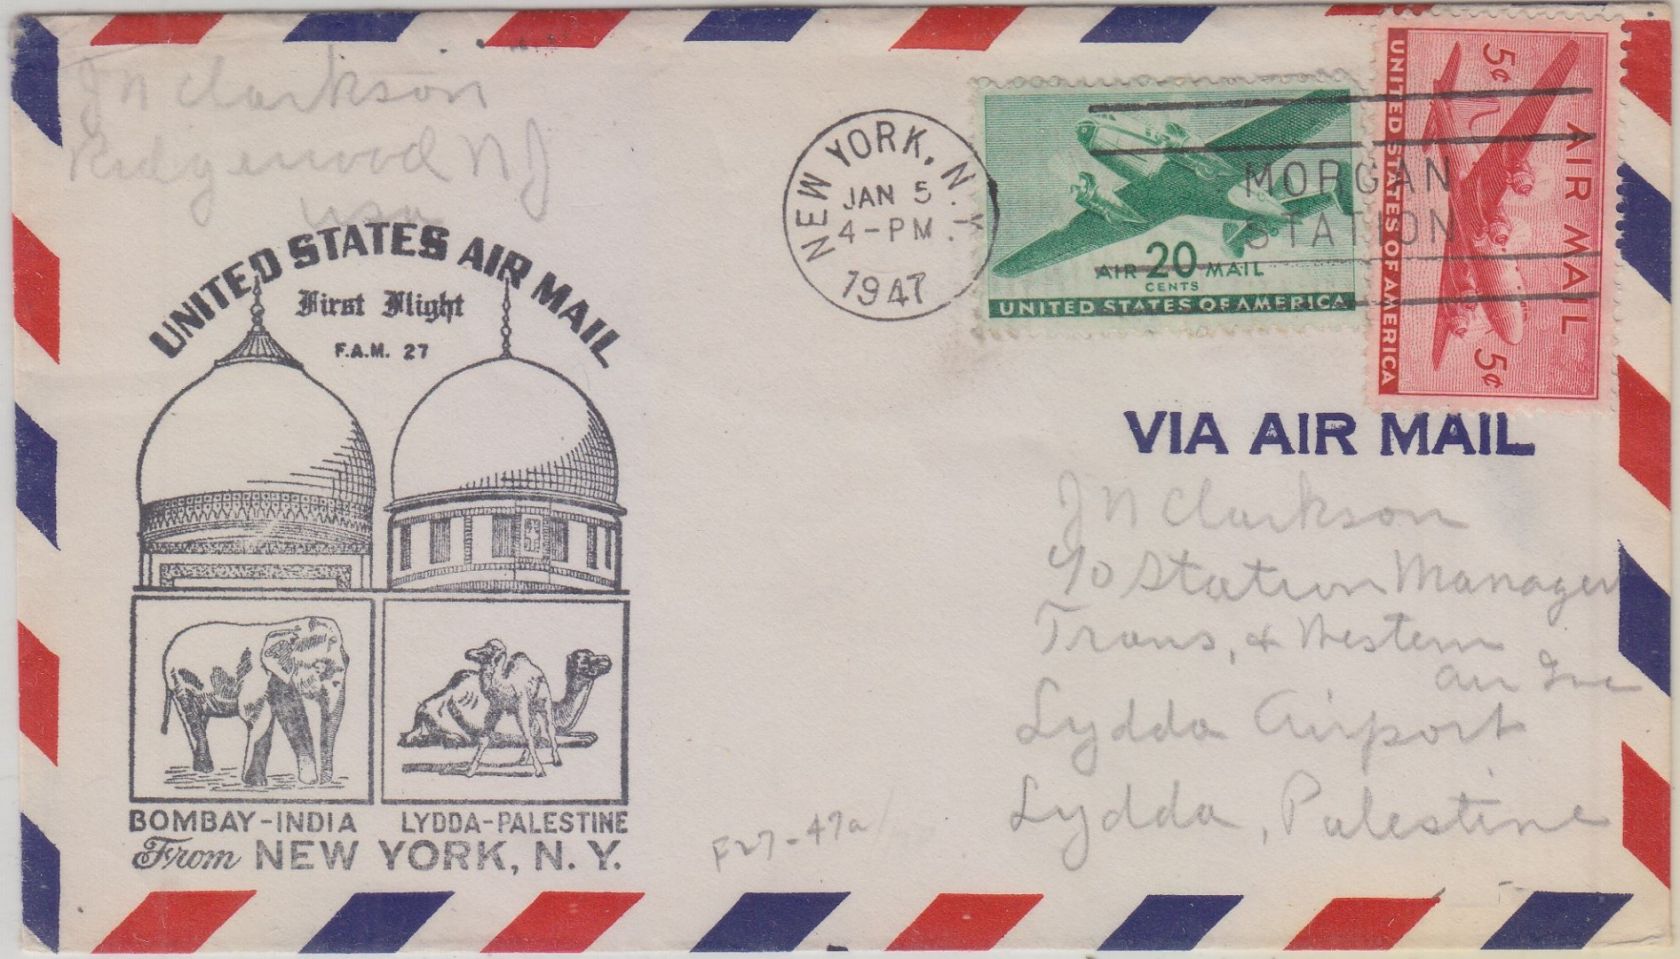 J N Clarkson
Ridgewood N J
USA
UNITED STATES AIR MAIL
First Flight
F.A.M. 27
BOMBAY-INDIA LYDDA-PALESTINE
From NEW YORK, N. Y.
NEW YORK, N.Y.
JAN 5
4-PM
1947
MORGAN
STATION
AIR 20 MAIL
CENTS
UNITED STATES OF AMERICA
5¢
AIR MAIL
5¢
UNITED STATES OF AMERICA
VIA AIR MAIL
J N Clarkson
c/o Station Manager
Trans, & Western
Air Inc
Lydda Airport
Lydda, Palestine
F27-47a